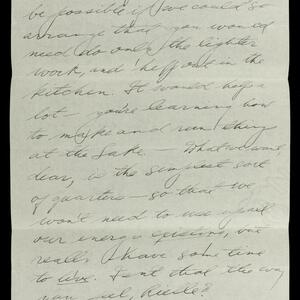 be possible if we could so
arrange that you would
need do only the lighter
work, and help out in the
kitchen. It would help a
lot — you're learning how
to make and run things
at the Lake. — What we want
dear, is the simplest sort
of quarters — so that we
won't need to use up all
our energy but
really have some time
to live. Isn't that the way
you feel,